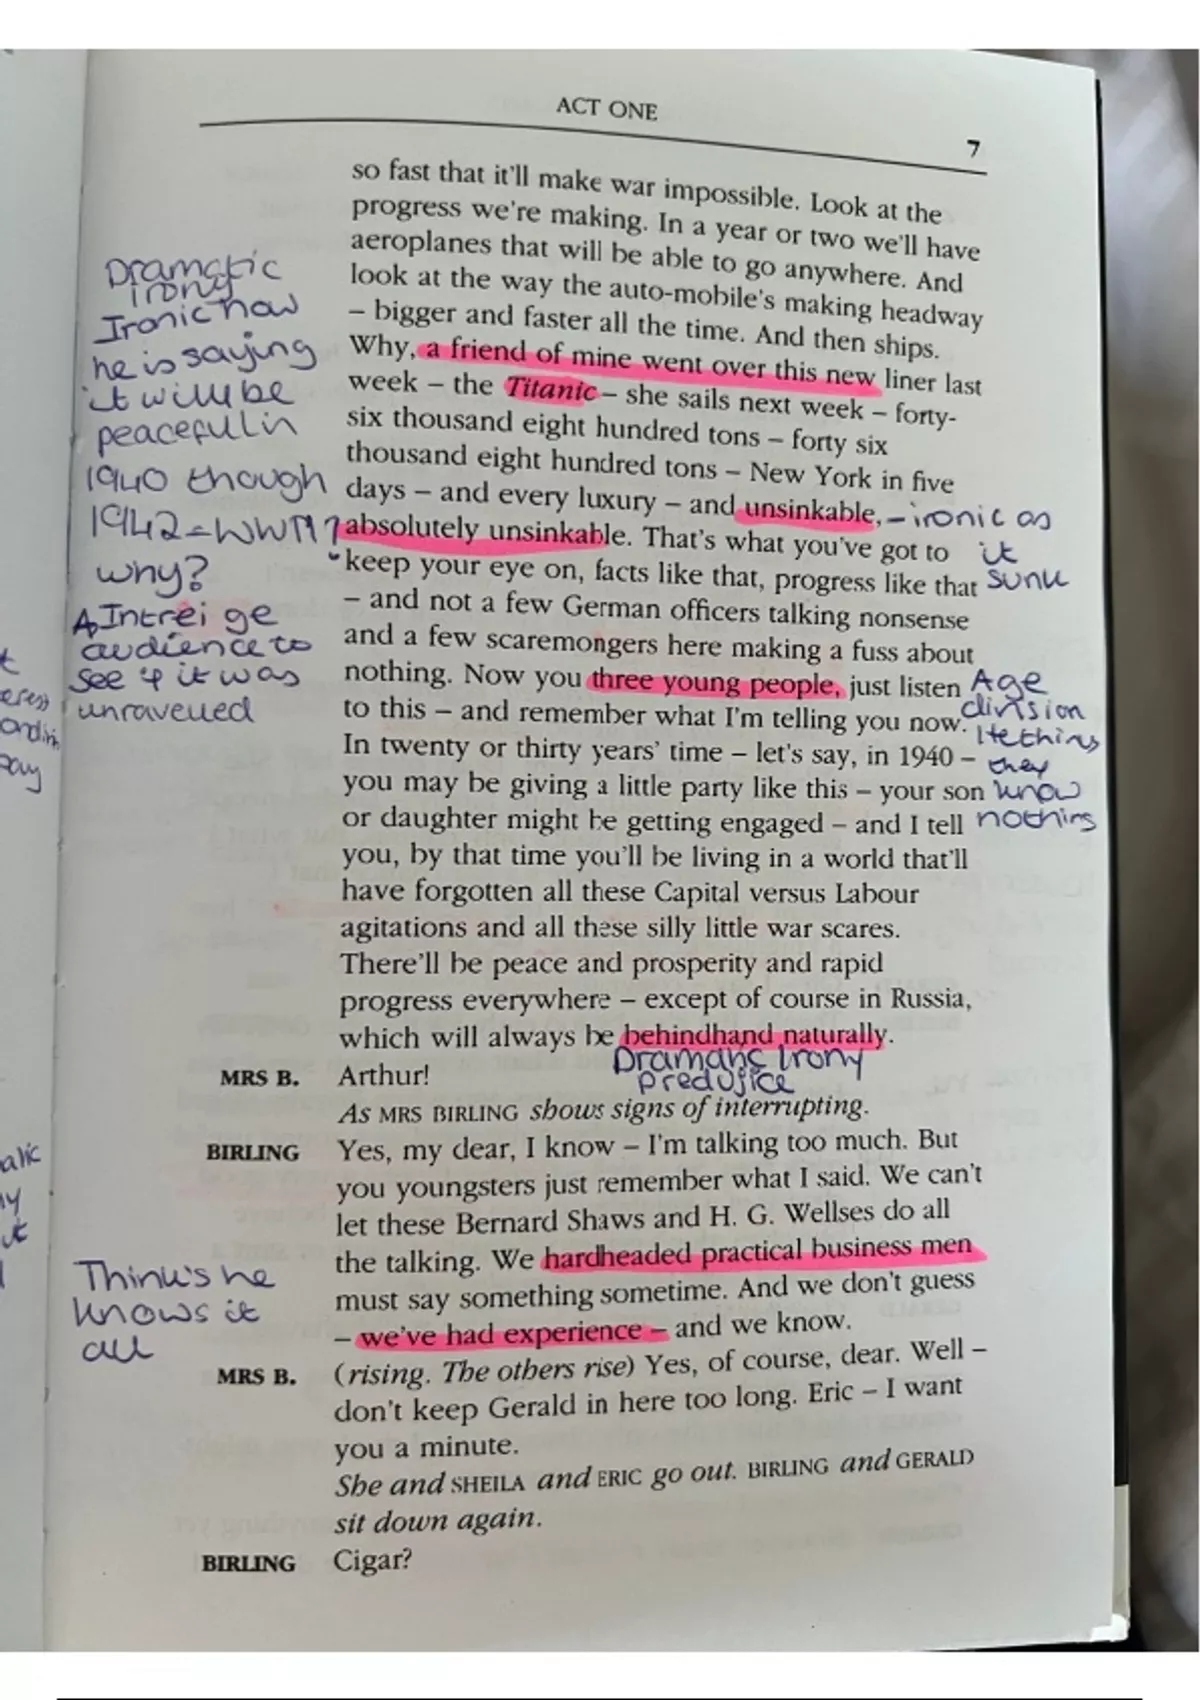 ACT ONE
7
so fast that it'll make war impossible. Look at the
progress we're making. In a year or two we'll have
aeroplanes that will be able to go anywhere. And
look at the way the auto-mobile's making headway
– bigger and faster all the time. And then ships.
Why, a friend of mine went over this new liner last
week – the Titanic – she sails next week – forty-
six thousand eight hundred tons – forty six
thousand eight hundred tons – New York in five
days – and every luxury – and unsinkable,
absolutely unsinkable. That's what you've got to
keep your eye on, facts like that, progress like that
– and not a few German officers talking nonsense
and a few scaremongers here making a fuss about
nothing. Now you three young people, just listen
to this – and remember what I'm telling you now.
In twenty or thirty years' time – let's say, in 1940 –
you may be giving a little party like this – your son
or daughter might be getting engaged – and I tell
you, by that time you'll be living in a world that'll
have forgotten all these Capital versus Labour
agitations and all these silly little war scares.
There'll be peace and prosperity and rapid
progress everywhere – except of course in Russia,
which will always be behindhand naturally.
MRS B. Arthur!
As MRS BIRLING shows signs of interrupting.
BIRLING Yes, my dear, I know – I'm talking too much. But
you youngsters just remember what I said. We can't
let these Bernard Shaws and H. G. Wellses do all
the talking. We hardheaded practical business men
must say something sometime. And we don't guess
– we've had experience – and we know.
MRS B. (rising. The others rise) Yes, of course, dear. Well –
don't keep Gerald in here too long. Eric – I want
you a minute.
She and SHEILA and ERIC go out. BIRLING and GERALD
sit down again.
BIRLING Cigar?
Dramatic
irony
Ironic how
he is saying
it will be
peaceful in
1940 though
1942 = WW11?
why?
Intreige
audience to
see if it was
unravelled
Think's he
knows it
all
– ironic as
it
sunk
Age
division
He thinks
they
know
nothing
Dramatic Irony
predujice
pay